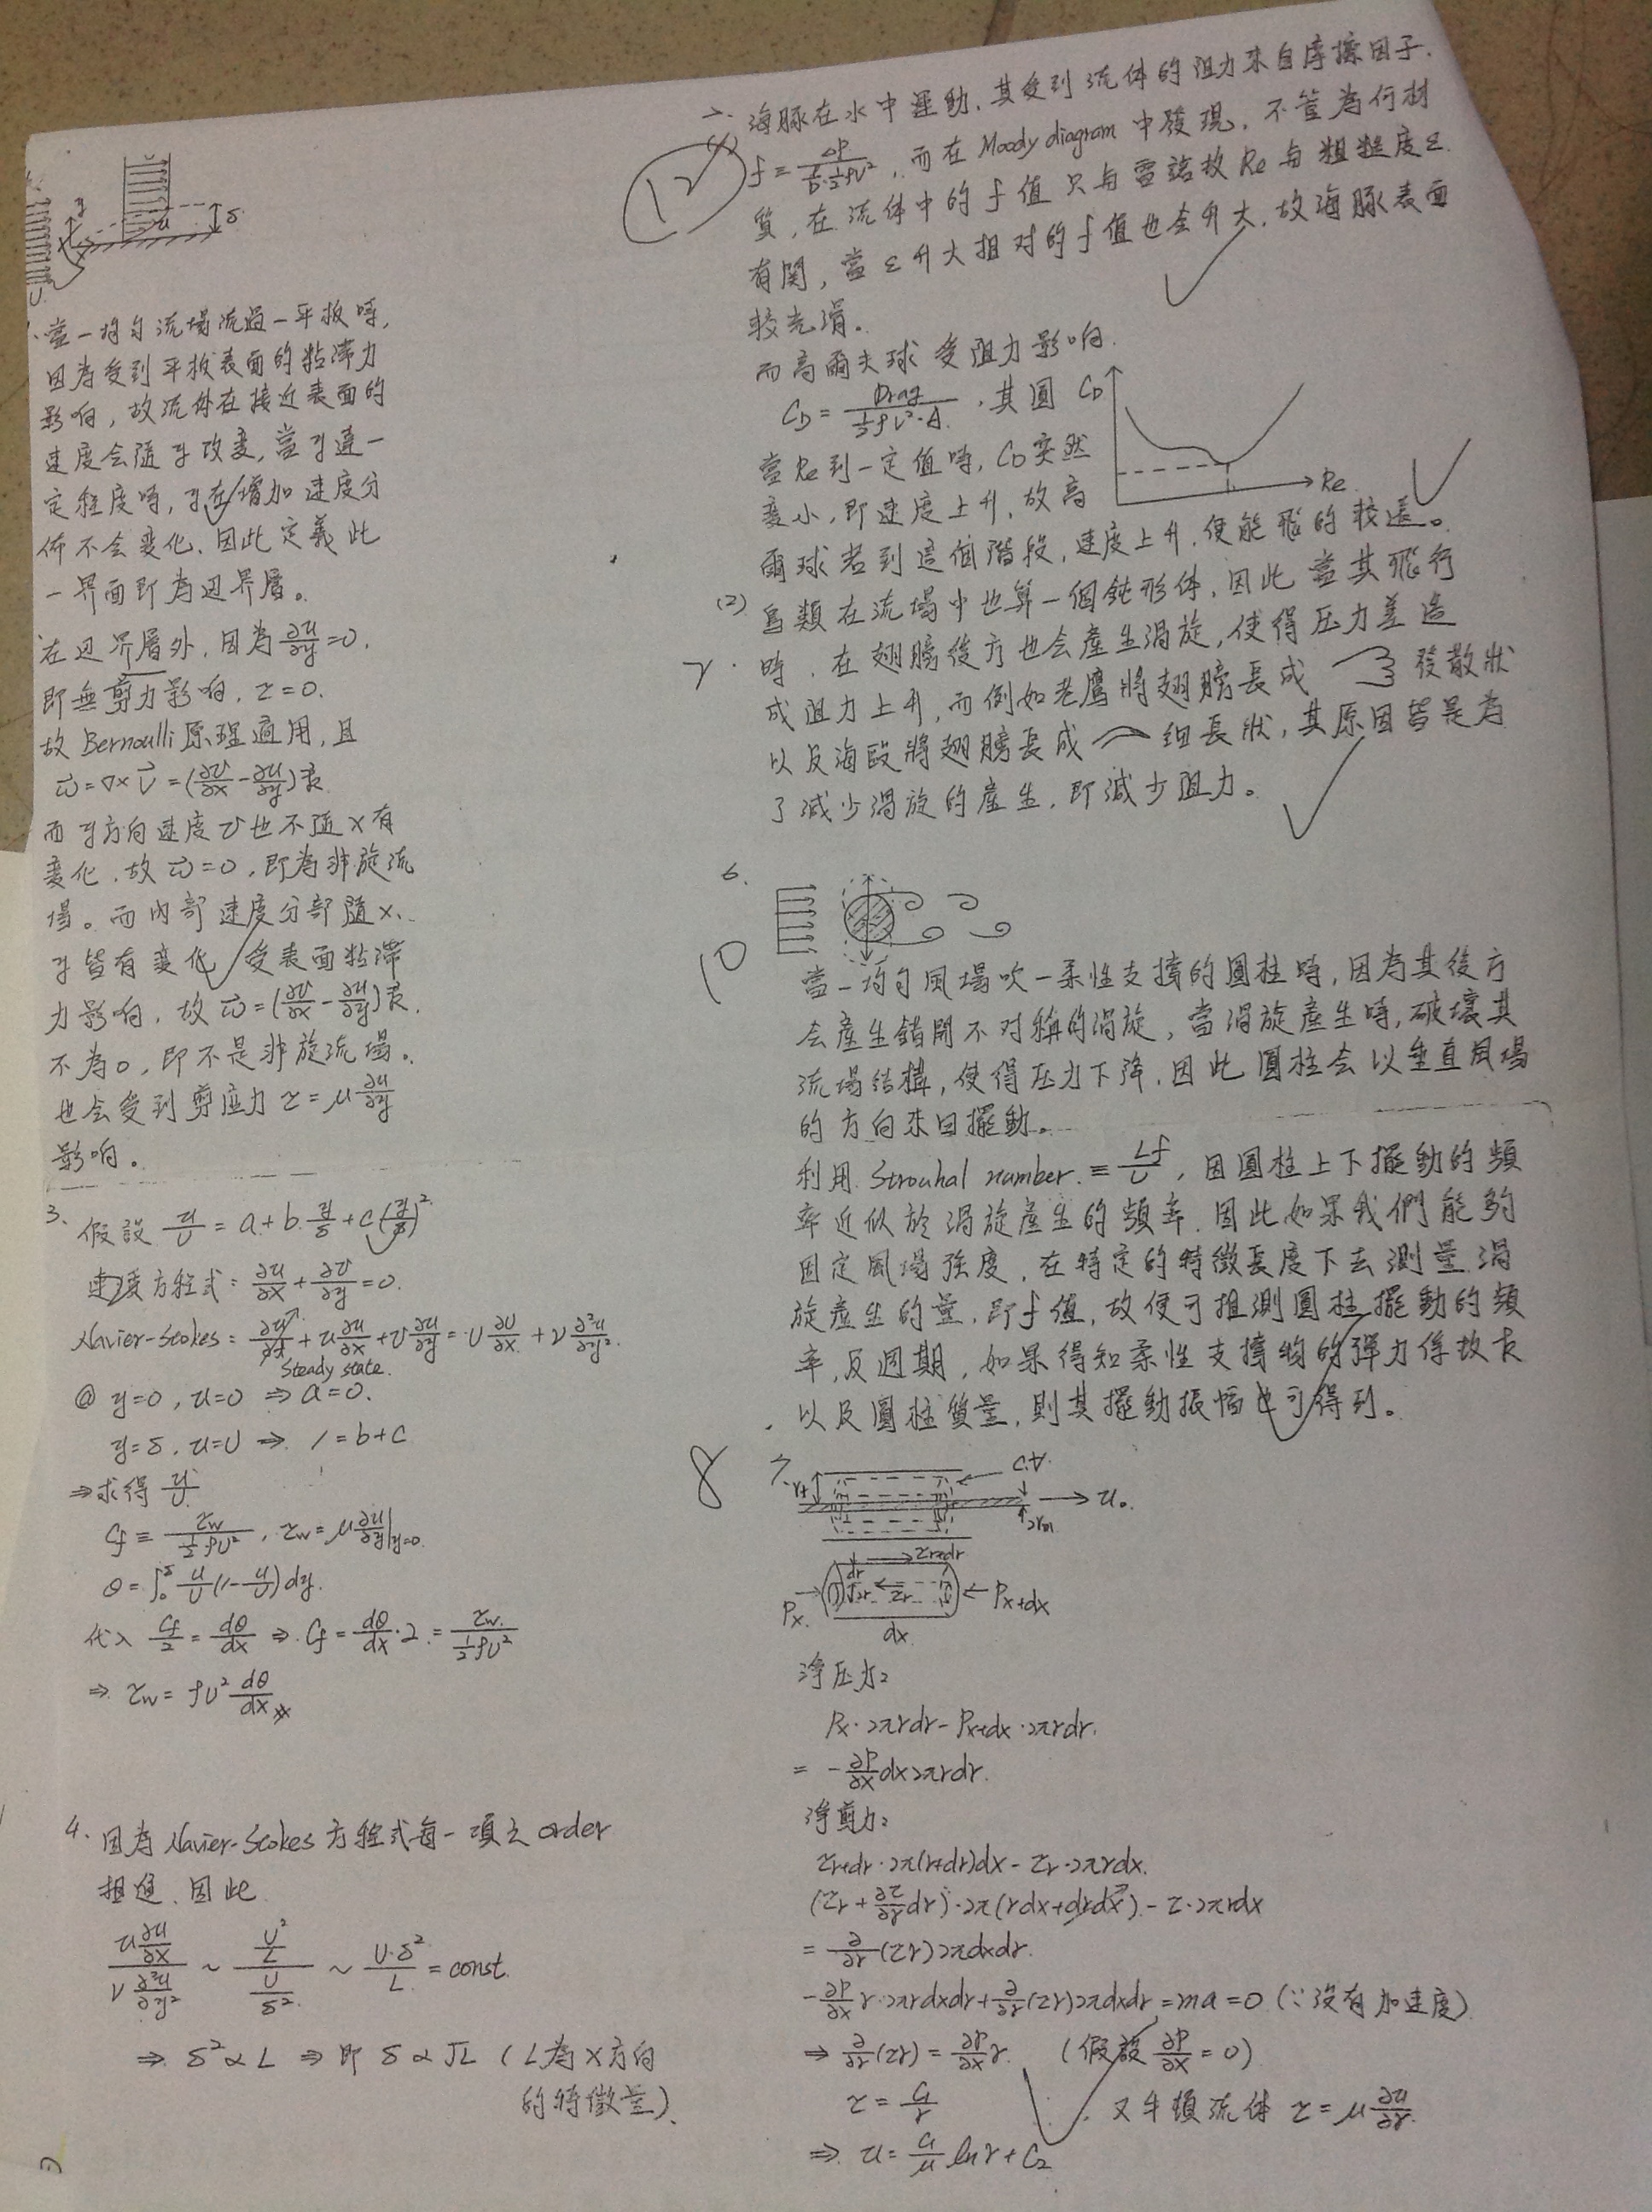 當一均勻流場流過一平板時,
因為受到平板表面的粘滯力
影响, 故流体在接近表面的
速度会隨y改变, 當y達一
定程度時, y在增加速度分
佈不会变化. 因此定義此
一界面即為边界層。
在边界層外, 因為∂u/∂y=0,
即無剪力影响, τ=0.
故 Bernoulli 原理適用, 且
ω⃗=∇×V⃗=(∂v/∂x-∂u/∂y)k⃗
而y方向速度v也不隨x有
变化, 故ω⃗=0, 即為非旋流
場。而內部速度分部隨x、
y皆有变化, 受表面粘滯
力影响, 故ω⃗=(∂v/∂x-∂u/∂y)k⃗.
不為0, 即不是非旋流場。
也会受到剪应力τ=μ∂u/∂y
影响。
3. 假設 u/U = a+b·y/δ+c(y/δ)²
連續方程式: ∂u/∂x+∂v/∂y=0.
Navier-Stokes = ∂u/∂t+u∂u/∂x+v∂u/∂y=U∂U/∂x+ν∂²u/∂y².
Steady state.
@ y=0, u=0 ⇒ a=0.
y=δ, u=U ⇒ 1=b+c
⇒求得 u/U
Cf≡τw/(½ρU²), τw=μ∂u/∂y|y=0.
θ=∫₀^δ u/U(1-u/U)dy.
代入 Cf/2=dθ/dx ⇒ Cf=dθ/dx·2=τw/(½ρU²)
⇒ τw=ρU²dθ/dx
4. 因為 Navier-Stokes 方程式每一項之order
相近, 因此
(u∂u/∂x)/(ν∂²u/∂y²) ~ (U²/L)/(U/δ²) ~ U·δ²/L = const.
⇒ δ²∝L ⇒ 即 δ∝√L (L為x方向
的特徵量).
12
(1) 海豚在水中運動, 其受到流体的阻力來自摩擦因子.
f≡ΔP/(L/D·½ρV²), 而在 Moody diagram 中發現, 不管為何材
質, 在流体中的f值只与雷諾數Re与粗糙度ε
有関, 當ε升大相对的f值也会升大, 故海豚表面
較光滑。
而高爾夫球受阻力影响.
CD=Drag/(½ρV²·A), 其圖 CD
當Re到一定值時, CD突然
变小, 即速度上升, 故高 Re
爾球若到這個階段, 速度上升, 便能飛的較遠。
(2) 鳥類在流場中也算一個鈍形体, 因此當其飛行
時, 在翅膀後方也会產生渦旋, 使得压力差造
成阻力上升, 而例如老鷹將翅膀長成 發散狀
以及海鷗將翅膀長成 細長狀, 其原因皆是為
了減少渦旋的產生, 即減少阻力。
6.
10
當一均勻風場吹一柔性支撐的圓柱時, 因為其後方
会產生錯開不对稱的渦旋, 當渦旋產生時, 破壞其
流場結構, 使得压力下降, 因此圓柱会以垂直風場
的方向來回擺動。
利用 Strouhal number ≡ Lf/U, 因圓柱上下擺動的頻
率近似於渦旋產生的頻率, 因此如果我們能夠
固定風場強度, 在特定的特徵長度下去測量渦
旋產生的量, 即f值, 故便可推測圓柱擺動的頻
率, 及週期, 如果得知柔性支撐物的彈力係數k
以及圓柱質量, 則其擺動振幅也可得到。
8
7. C.V.
u₀
τr+dr
dr
Px τr Px+dx
dx
淨压力:
Px·2πrdr-Px+dx·2πrdr.
= -∂P/∂x dx2πrdr.
淨剪力:
τr+dr·2π(r+dr)dx-τr·2πrdx.
(τr+∂τ/∂r dr)·2π(rdx+drdx)-τ·2πrdx
= ∂/∂r(τr)2πdxdr.
-∂P/∂x r·2πrdxdr+∂/∂r(τr)2πdxdr=ma=0 (∵沒有加速度)
⇒ ∂/∂r(τr)=∂P/∂x r. (假設∂P/∂x=0)
τ=C₁/r 又牛頓流体 τ=μ∂u/∂r.
⇒ u=C₁/μ lnr+C₂